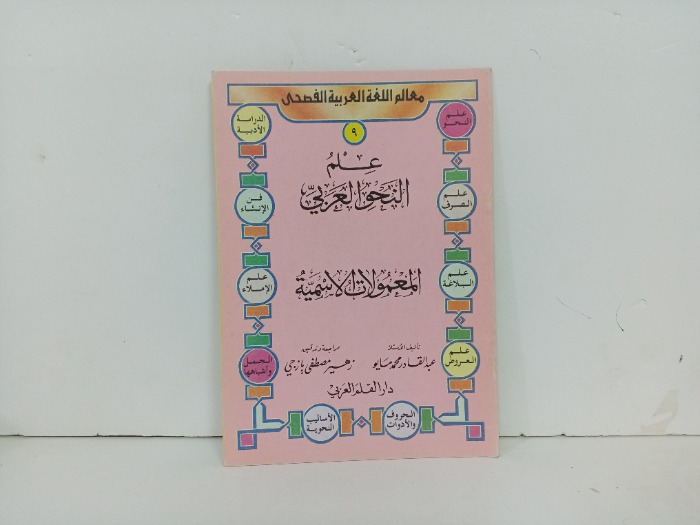 معالم اللغة العربية الفصحى
٩
علم
النحو
الدراسة
الأدبية
عِلْمُ
النَّحْوِ العَرَبيِّ
علم
الصرف
فن
الإنشاء
علم
البلاغة
علم
الإملاء
المَعْمُولاتُ الاسْمِيَّة
تأليف الأستاذ
عبد القادر محمد مايو
مراجعة وتدقيق
زهير مصطفى يازجي
علم
العروض
الجمل
وأشباهها
دار القلم العربي
الحروف
والأدوات
الأساليب
النحوية